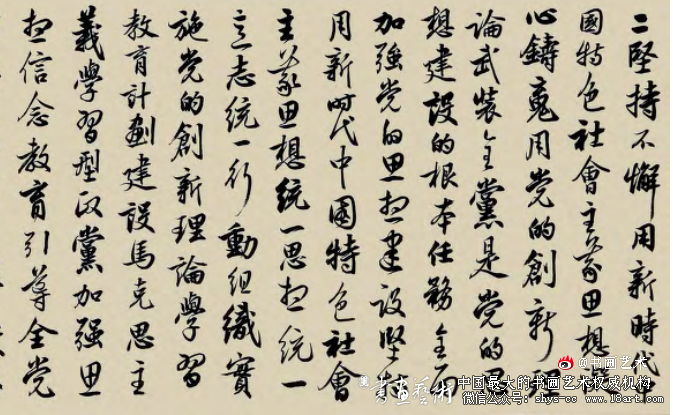 二堅持不懈用新時代
國特色社會主義思想凝
心鑄魂用党的創新理
論武裝全黨是党的思
想建設的根本任務全面
加強党的思想建设堅持
用新时代中國特色社會
主義思想统一思想统一
意志统一行動組織實
施党的創新理論學習
教育計劃建設馬克思主
義學習型政黨加强思
想信念教育引导全党
書畫藝術
@书画艺术
中国最大的书画艺术权威机构
微信公众号：shys-cc www.18art.com